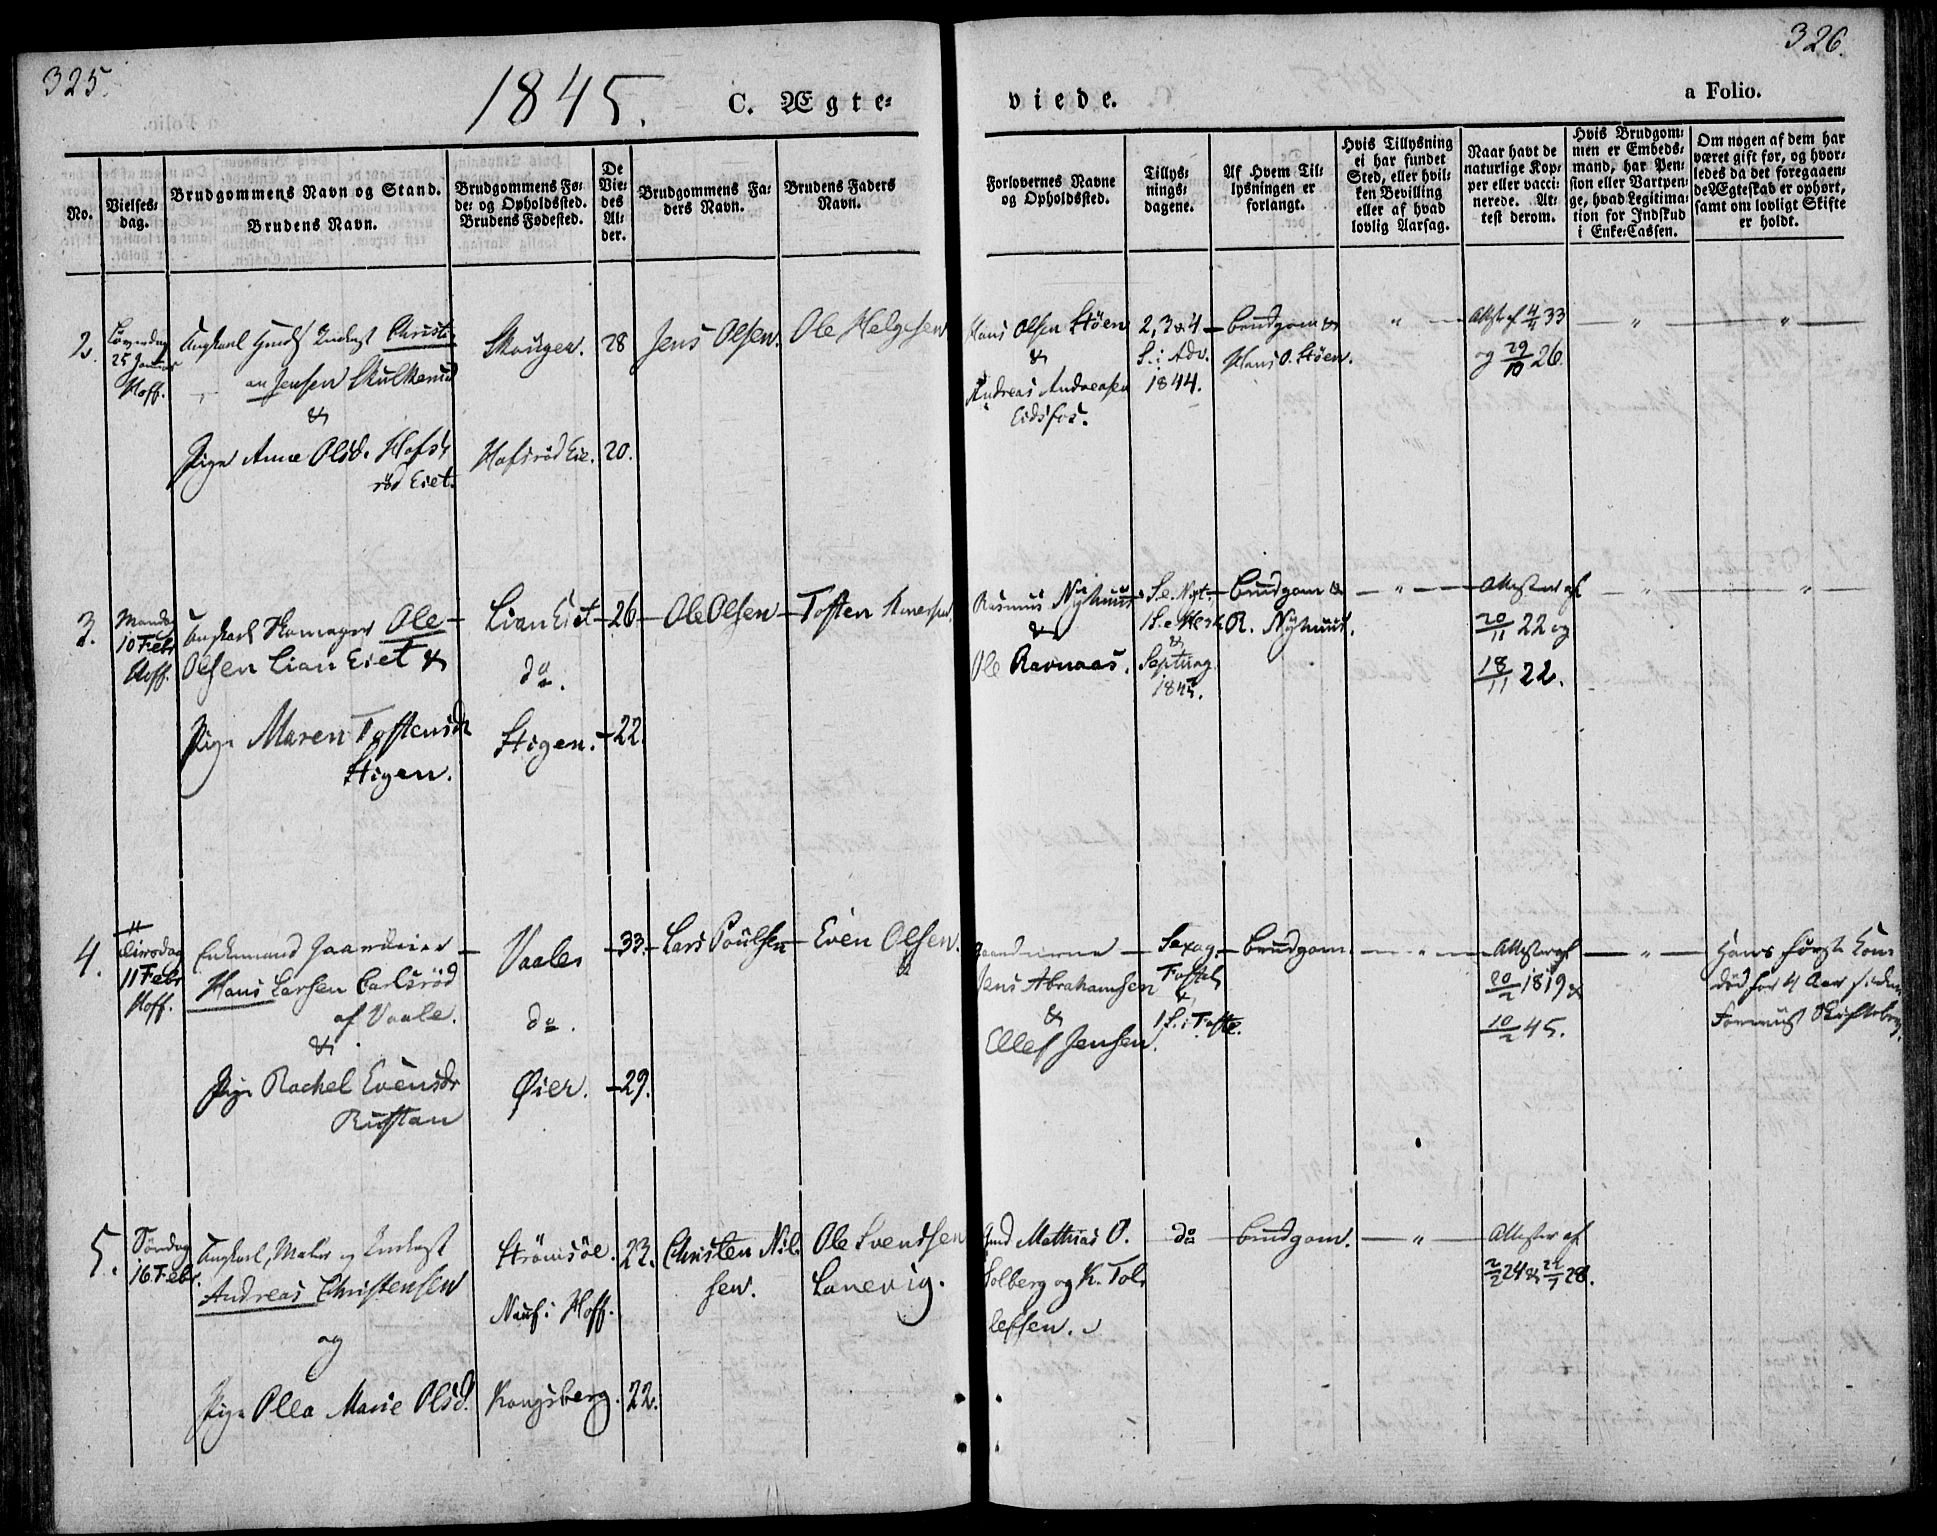 325.
326.
1845.
C. Ægte-
viede.
a Folio.
No.
Vielses-
dag.
Brudgommens Navn og Stand.
Brudens Navn.
Brudgommens Fø-
de- og Opholdssted.
Brudens Fødested.
De
Vie-
des
Al-
der.
Brudgommens Fa-
ders Navn.
Brudens Faders
Navn.
Forlovernes Navne
og Opholdssted.
Tillys-
nings-
dagene.
Af Hvem Til-
lysningen er
forlangt.
Hvis Tillysning
ei har fundet
Sted, eller hvil-
ken Bevilling
eller af hvad
lovlig Aarsag.
Naar havt de
naturlige Kop-
per eller vacci-
nerede. At-
test derom.
Hvis Brudgom-
men er Embeds-
mand, har Pen-
sion eller Vartpen-
ge, hvad Legitima-
tion for Indskud
i Enke-Cassen.
Om nogen af dem har
været gift før, og hvor-
ledes da det foregaaen-
de Ægteskab er ophørt,
samt om lovligt Skifte
er holdt.
2.
25 Januar
Hoff.
Ungkarl Inderst Christi-
an Jensen Skulkerud
&
Pige Anne Olsd. Hofs-
rød Eiet.
Skougen.
Hafsrød Eie.
28
20.
Jens Olsen.
Ole Helgesen
Hans Olsen Støen
&
Andreas Andreasen
Eidsfos.
2, 3 & 4
S. i Adv.
1844.
Brudgom &
Hans O. Støen.
"
Attest af 4/4 33
og 29/10 26.
"
"
3.
Mandag
10 Febr
Hoff.
Ungkarl Skomager Ole
Olsen Lian Eiet &
Pige Maren Toftensd
Stigen.
Lian Eiet
do.
Stigen.
26
22.
Ole Olsen
Toften
Rasmus Nyhuus
&
Ole Ravnaas.
S. e. Nyt.
1 S. e. H3K
&
Septuag.
1845.
Brudgom &
R. Nyhuus.
"
Attester af
20/11 22 og
18/11 22.
"
"
4.
Tirsdag
11 Febr
Hoff.
Enkemand Gaardeier
Hans Larsen Carlsrød
af Vaale.
&
Pige Rachel Evensdr
Rustan
Vaale
do.
Øier.
33.
29.
Lars Poulsen
Even Olsen.
Gaardeierne
Jens Abrahamsen
&
Ellef Jensen.
Sexag.
Fastel.
&
1 S. i Faste.
Brudgom.
"
Attester af
20/2 1819 &
10/2 45.
"
Hans første Kone
død for 4 Aar siden
Foreviist Skiftebrev.
5.
Søndag
16. Febr.
Ungkarl, Maler og Inderst
Andreas Christensen
og
Pige Olea Marie Olsd.
Strømsøe.
i Hoff.
Kongsberg.
23.
22.
Christen Nil-
sen.
Ole Svendsen
Lanevig.
Mathias O.
Solberg og K. Tol-
lefsen.
do
Brudgom.
"
Attester af
2/2 24 &
28.